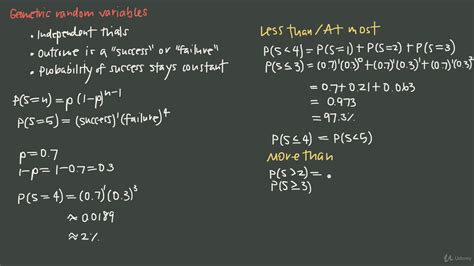 Geometric random variables
• Independent trials
• Outcome is a "success" or "failure"
• Probability of success stays constant
P(S=n) = p(1-p)ⁿ⁻¹
P(S=5) = (success)¹(failure)⁴
p=0.7
1-p=1-0.7=0.3
P(S=4) = (0.7)¹(0.3)³
≈ 0.0189
≈ 2%
Less than/At most
P(S<4) = P(S=1) + P(S=2) + P(S=3)
P(S≤3) = (0.7)¹(0.3)⁰ + (0.7)¹(0.3)¹ + (0.7)¹(0.3)²
= 0.7 + 0.21 + 0.063
= 0.973
= 97.3%
P(S≤4) = P(S<5)
More than
P(S>2) =
P(S≥3)
Udemy